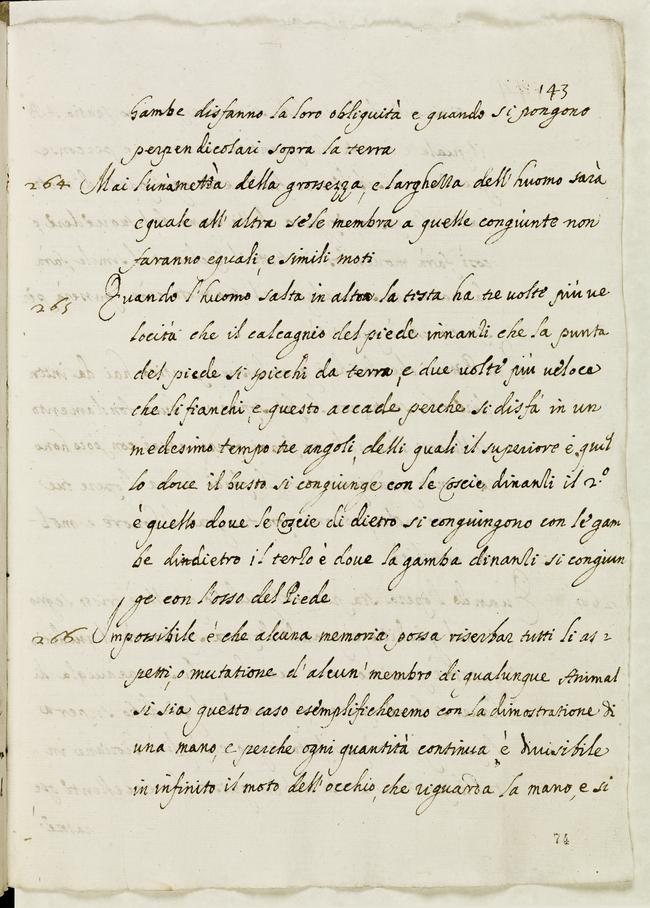 143
Gambe disfanno la loro obliguità e quando si pongono
perpendicolari sopra la terra
264 Mai l'una metta della grossezza, e larghezza dell'huomo sarà
equale all'altra se le membra a quelle congiunte non
faranno equali, e simili moti
265 Quando l'huomo salta in alto la testa ha tre volte più ve
locità che il calcagnio del piede innanzi che la punta
del piede si spicchi da terra, e due volte più veloce
che li fianchi, e questo accade perche si disfà in un
medesimo tempo tre angoli, delli quali il superiore è quel
lo dove il busto si congiunge con le Coscie dinanzi il 2.º
è quello dove le Coscie di dietro si congiungono con le gam
be dindietro il terzo è dove la gamba dinanzi si congiun
ge con l'osso del Piede
266 Impossibile è che alcuna memoria possa riserbar tutti li as-
petti, o mutatione d'alcun' membro di qualunque Animal
si sia questo caso esemplificheremo con la dimostratione di
una mano, e perche ogni quantità continua è divisibile
in infinito il moto dell'occhio, che riguarda la mano, e si
74